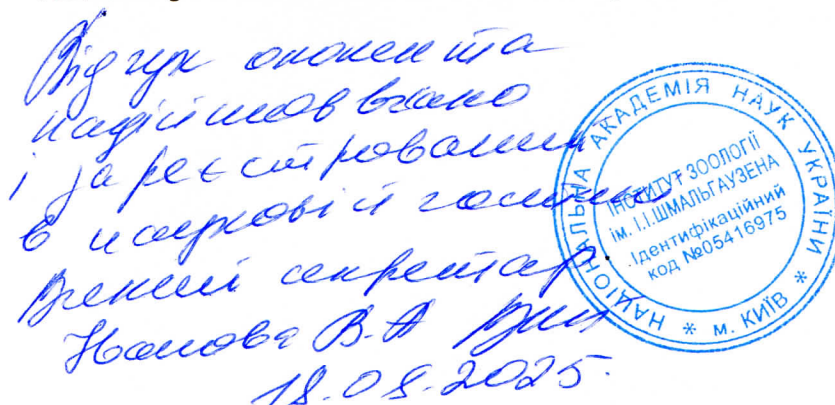 Відгук опонента
надійшов вчасно
і зареєстрований
в науковій частині
Вчений секретар
В.А
18.08.2025.
НАЦІОНАЛЬНА АКАДЕМІЯ НАУК УКРАЇНИ * М. КИЇВ *
ІНСТИТУТ ЗООЛОГІЇ
ім. І.І.ШМАЛЬГАУЗЕНА
Ідентифікаційний
код №05416975